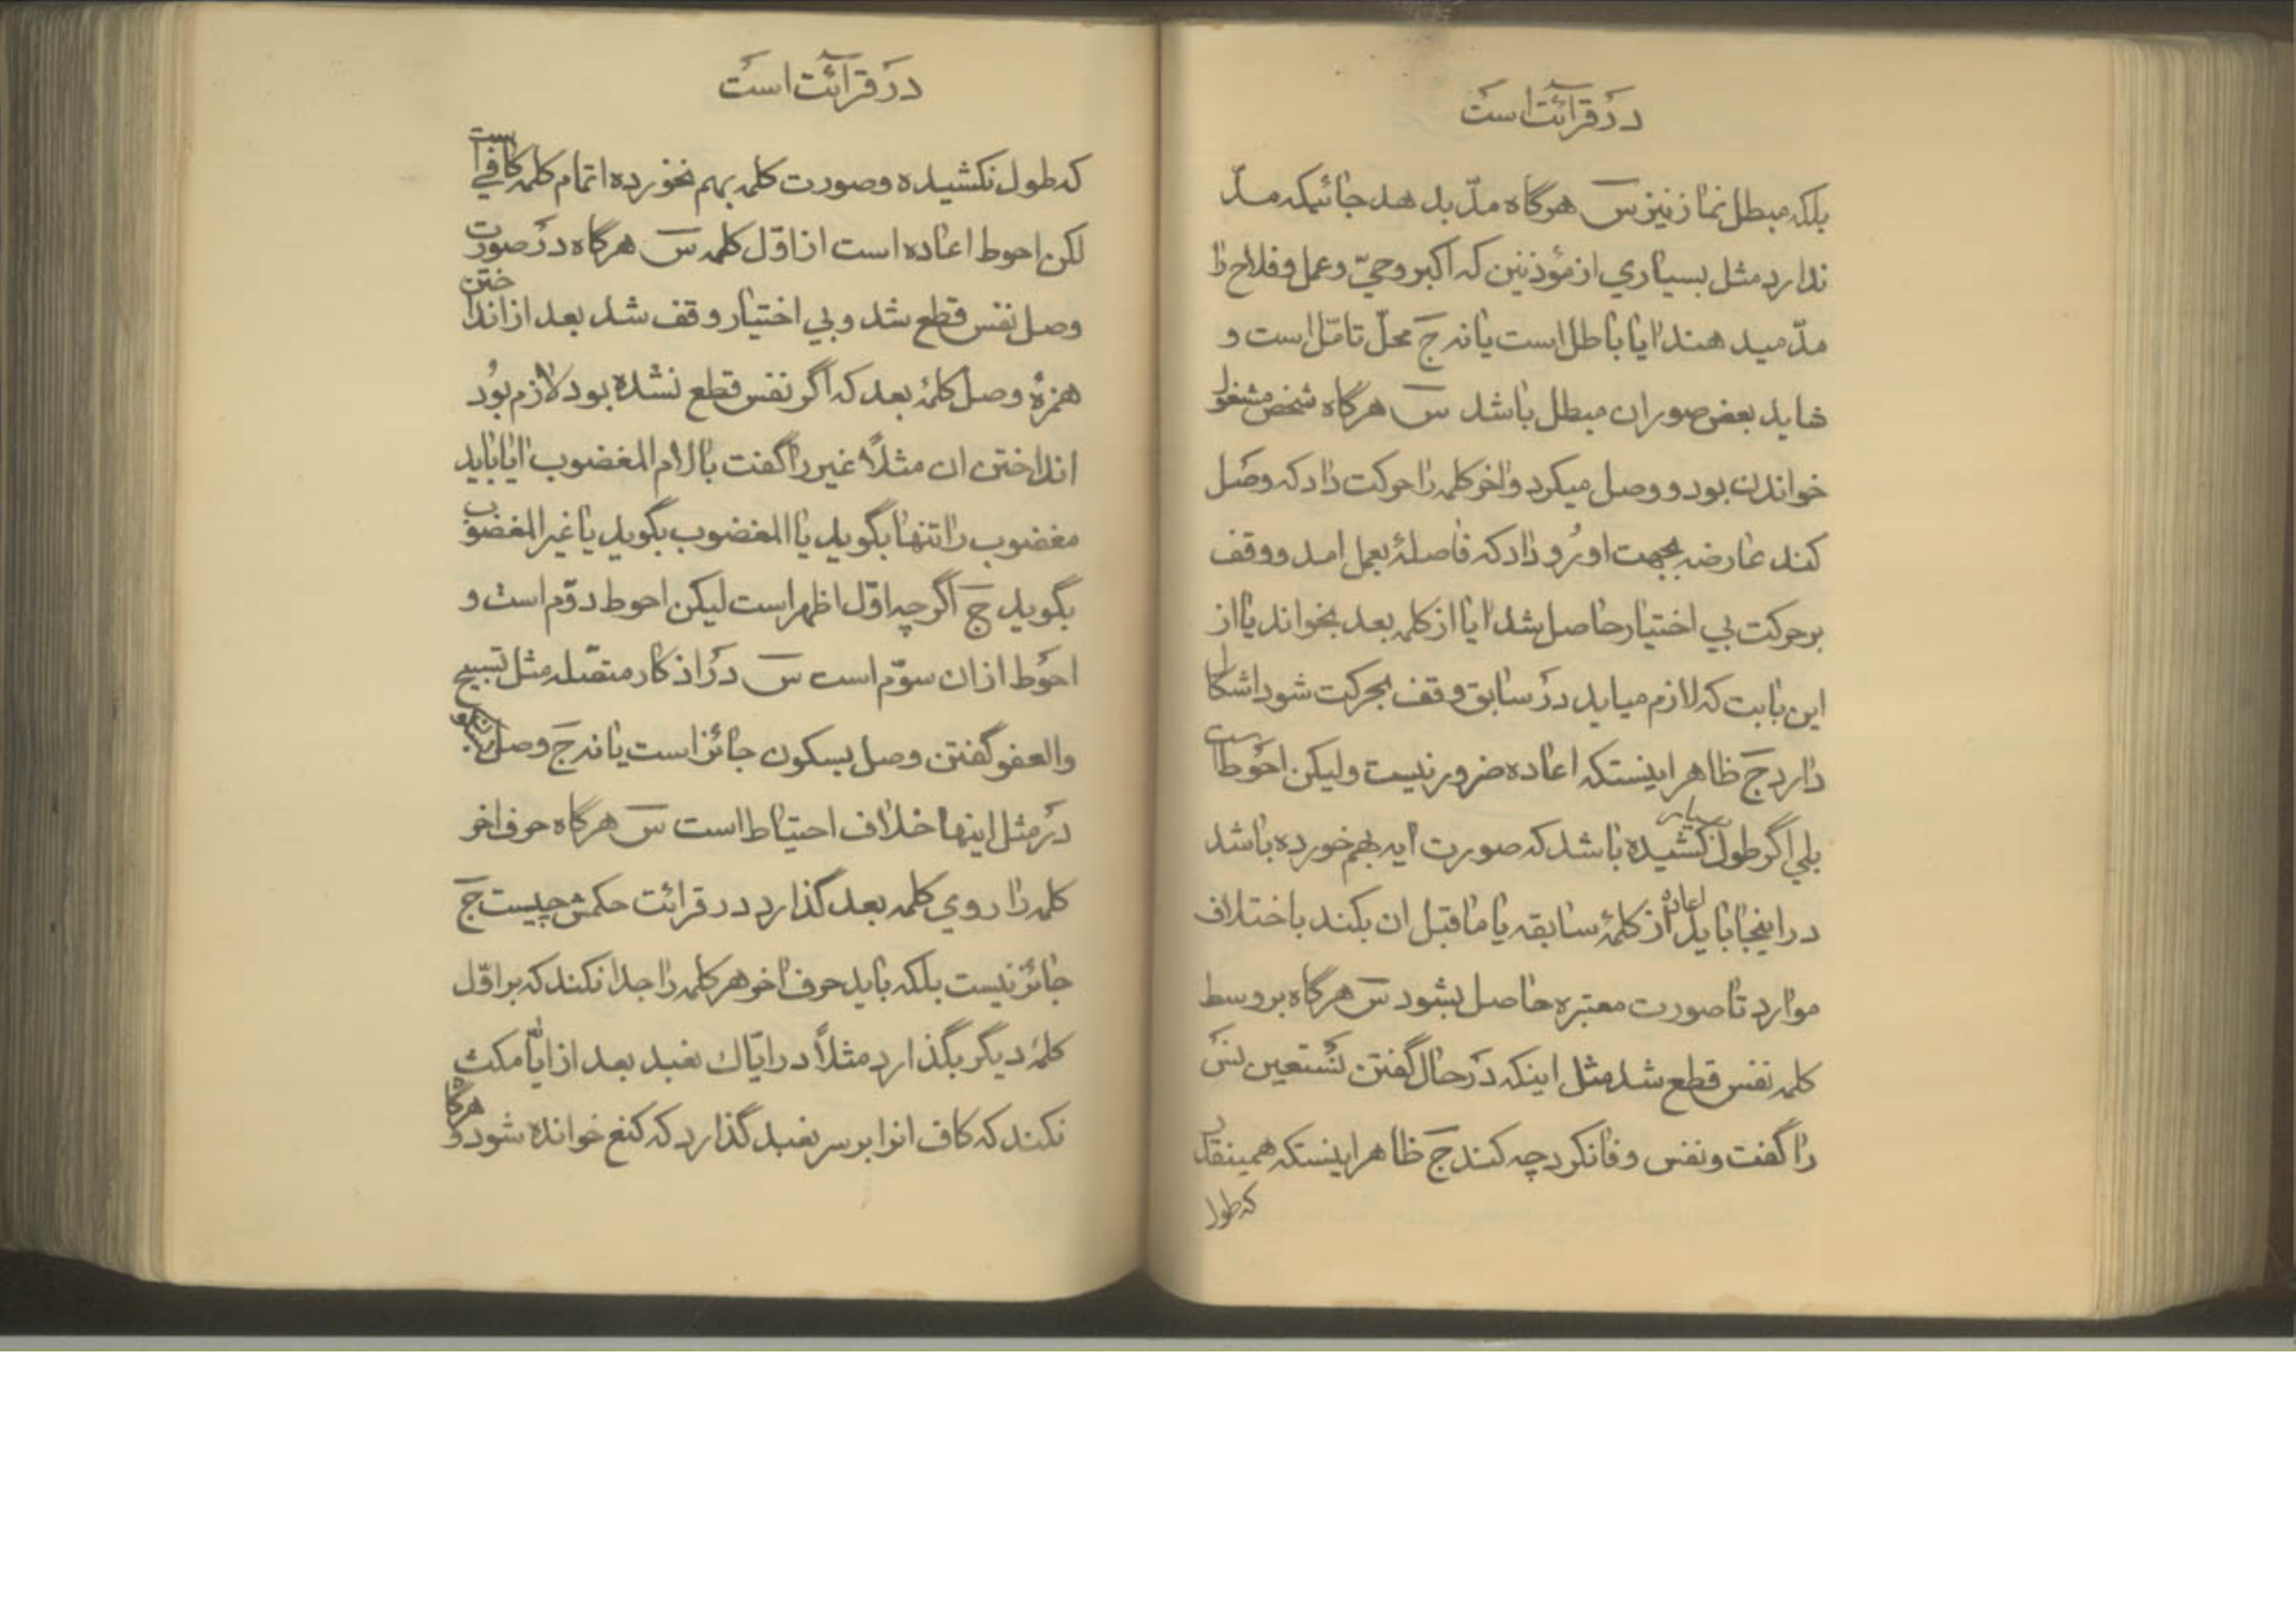 در قرائت است
بلکه مبطل نماز نیز س هرگاه مدّ بدهد جائیکه مدّ
ندارد مثل بسیاري از مؤذنین که اکبر و حيّ و عمل و فلاح را
مدّ میدهند ایا باطل است یا نه ج محلّ تامّل است و
شاید بعض صور ان مبطل باشد س هرگاه شخص مشغول
خواندن بود و وصل میکرد و اخر کلمه را حرکت داد که وصل
کند عارضه بجهت او رُو داد که فاصلهٔ بعمل امد و وقف
بر حرکت بي اختیار حاصل شد ایا از کلمه بعد بخواند یا از
این بابت که لازم میاید در سابق وقف بحرکت شود اشکال
دارد ج ظاهر اینستکه اعاده ضرور نیست و لیکن احوط است
بلي اگر طول بسیار کشیده باشد که صورت ایه بهم خورده باشد
در اینجا باید اعاده از کلمهٔ سابقه یا ما قبل ان بکند باختلاف
موارد تا صورت معتبره حاصل بشود س هرگاه بر وسط
کلمه نفس قطع شد مثل اینکه در حال گفتن نستعین نس
را گفت و نفس وفا نکرد چه کند ج ظاهر اینستکه همینقدر
که طول
در قرائت است
که طول نکشیده و صورت کلمه بهم نخورده اتمام کلمه کافي است
لکن احوط اعاده است از اوّل کلمه س هرگاه در صورت
وصل نفس قطع شد و بي اختیار وقف شد بعد از انداختن
همزهٔ وصل کلمهٔ بعد که اگر نفس قطع نشده بود لازم بود
انداختن ان مثلاً غیر را گفت با لام المغضوب ایا باید
مغضوب را تنها بگوید یا المغضوب بگوید یا غیر المغضوب
بگوید ج اگر چه اوّل اظهر است لیکن احوط دوّم است و
احوط از ان سوّم است س در اذکار متصّله مثل تسبیح
والعفو گفتن وصل بسکون جائز است یا نه ج وصل بسکون
در مثل اینها خلاف احتیاط است س هرگاه حرف اخر
کلمه را روي کلمه بعد گذارد در قرائت حکمش چیست ج
جائز نیست بلکه باید حرف اخر هر کلمه را جدا نکند که بر اوّل
کلمهٔ دیگر بگذارد مثلاً در ایّاك نعبد بعد از ایّا مکث
نکند که کاف انرا بر سر نعبد گذارد که کنع خوانده شود و هرگاه